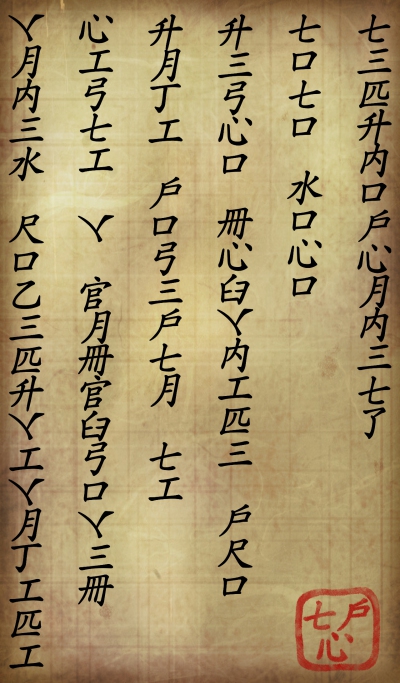 七三匹升内口戶心月内三七了
七口七口 水口心口
升三弓心口 冊心臼丫内工匹三 戶尺口
升月丁工 戶口弓三戶七月 七工
心工弓七工 丫 官月冊官臼弓口丫三冊
丫月内三水 尺口乙三匹升丫工丫月丁工匹工
七戶心